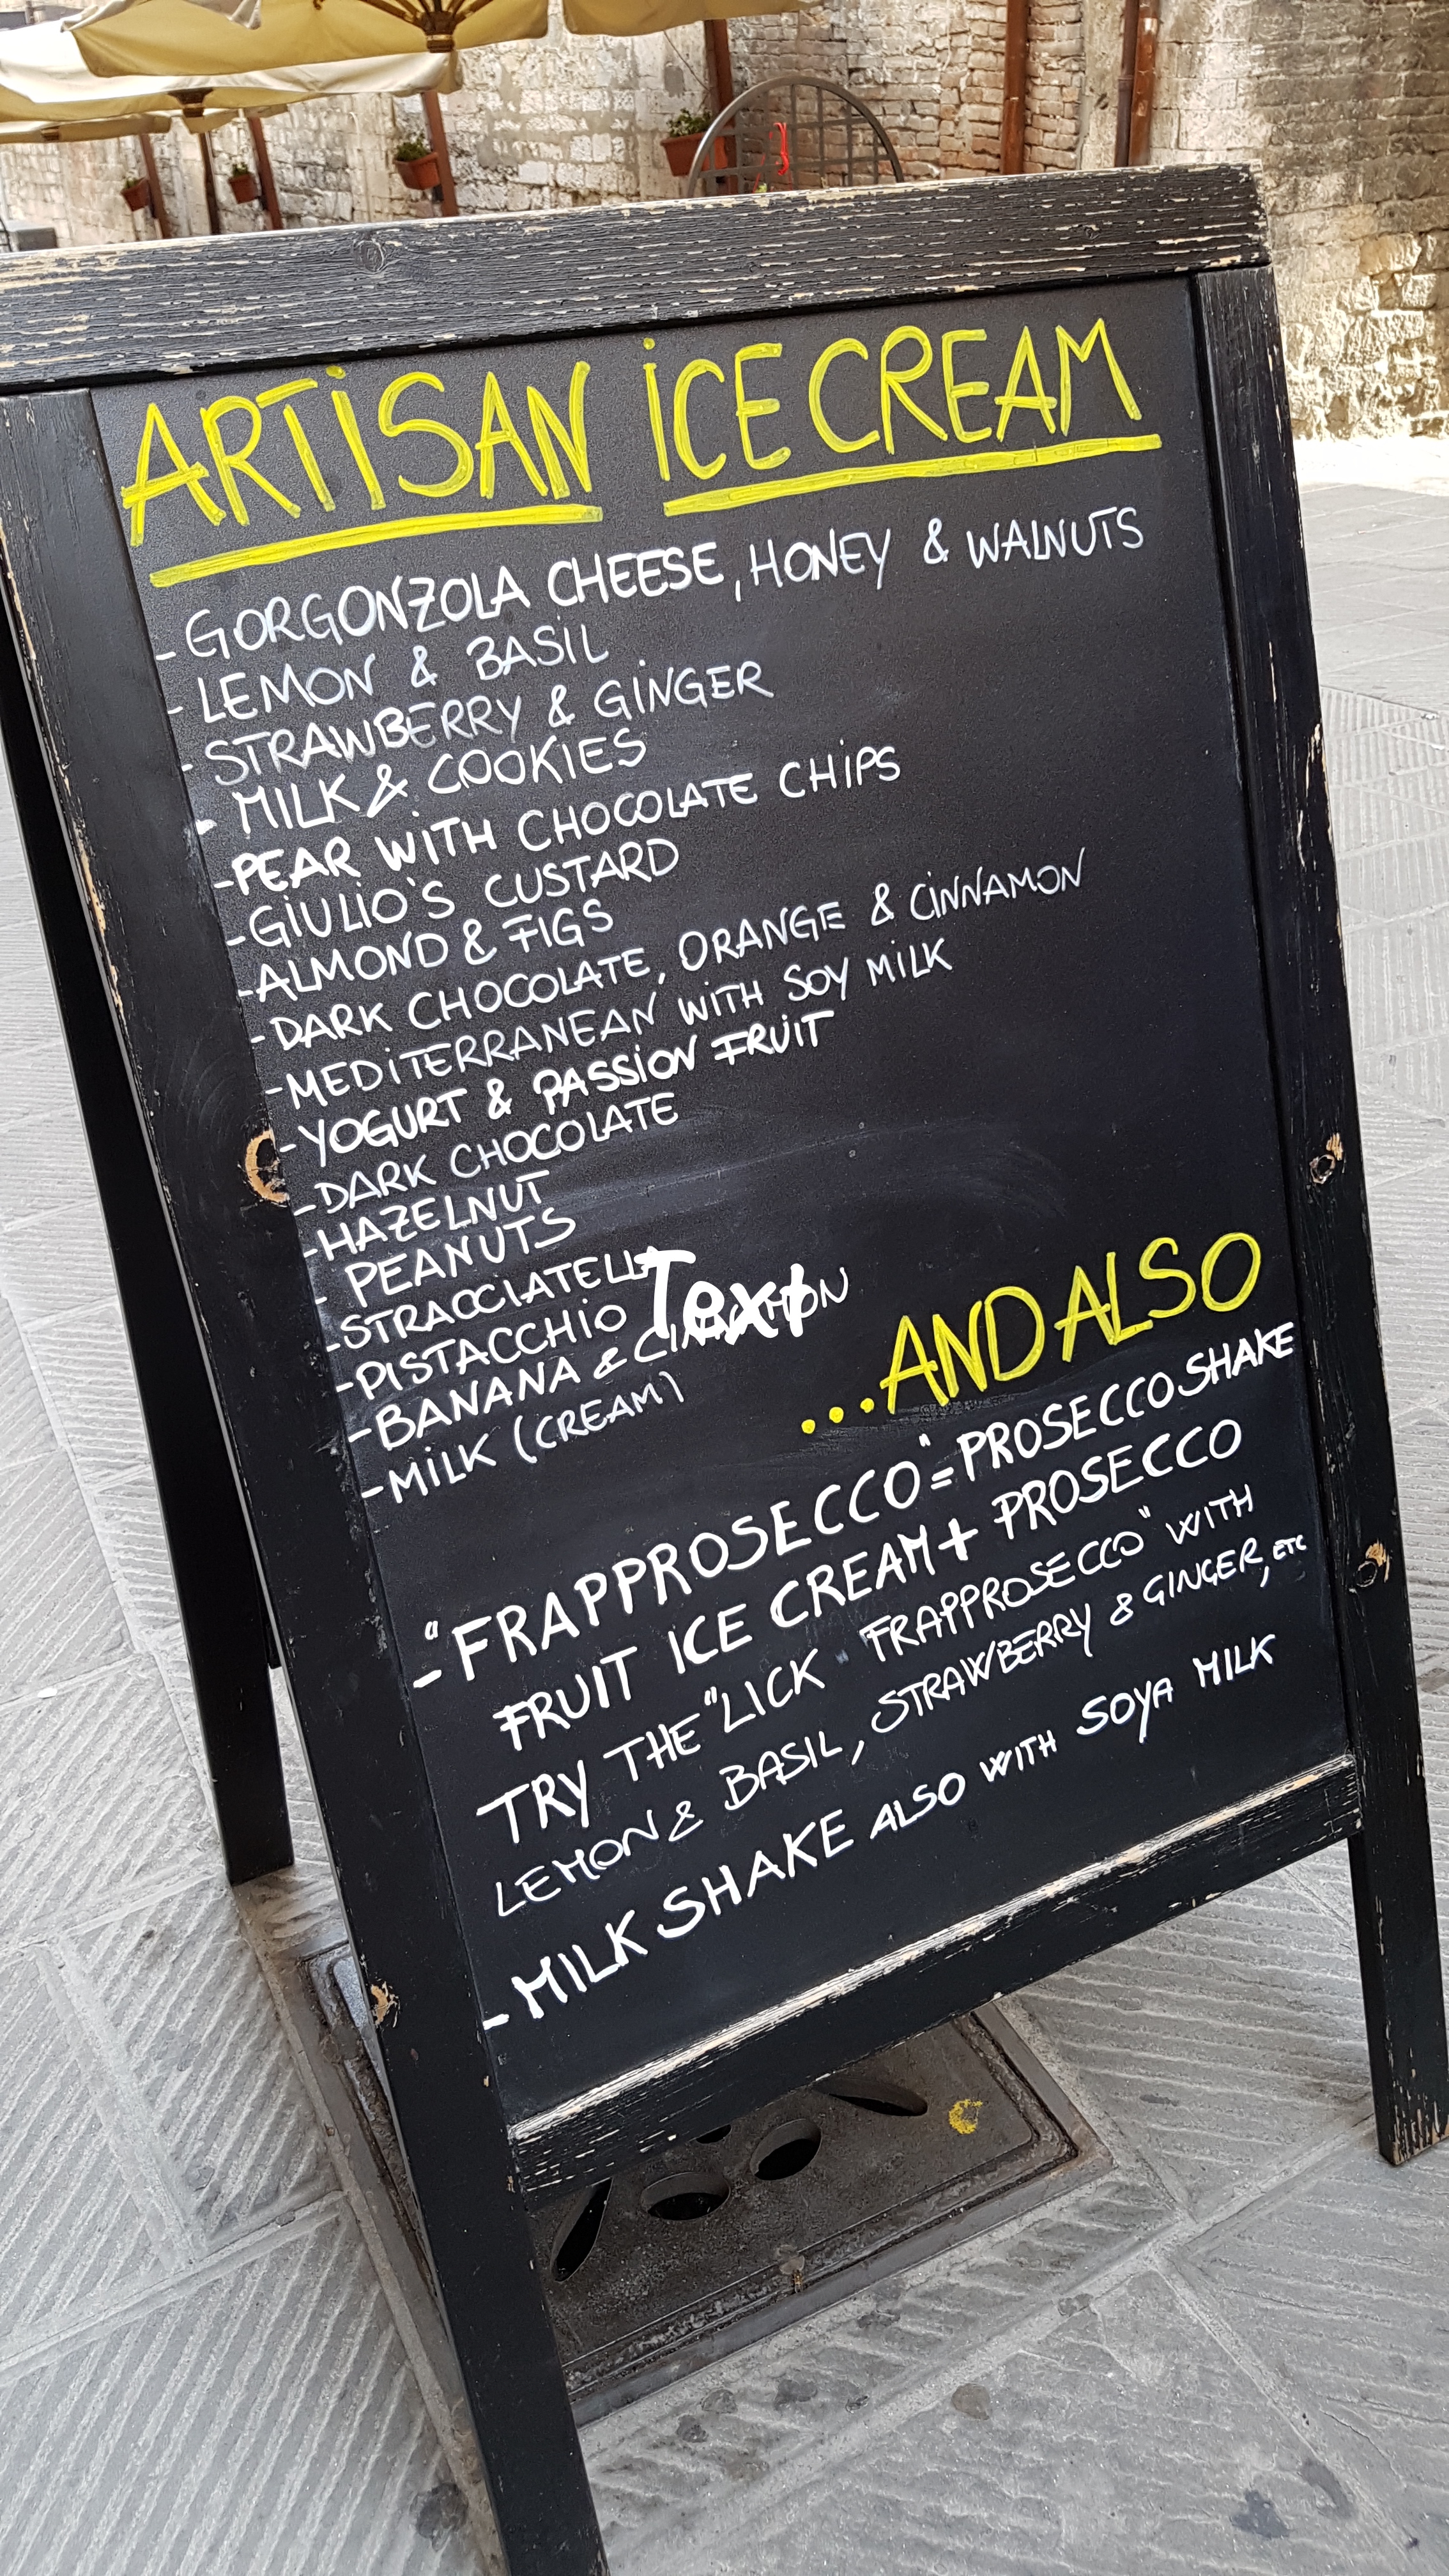 ARTISAN ICE CREAM
- GORGONZOLA CHEESE, HONEY & WALNUTS
- LEMON & BASIL
- STRAWBERRY & GINGER
- MILK & COOKIES
- PEAR WITH CHOCOLATE CHIPS
- GIULIO'S CUSTARD
- ALMOND & FIGS
- DARK CHOCOLATE, ORANGE & CINNAMON
- MEDITERRANEAN WITH SOY MILK
- YOGURT & PASSION FRUIT
- DARK CHOCOLATE
- HAZELNUT
- PEANUTS
- STRACCIATELLA
- PISTACCHIO
Text
- BANANA &
- MILK (CREAM)
...AND ALSO
- "FRAPPROSECCO" = PROSECCO SHAKE
FRUIT ICE CREAM + PROSECCO
TRY THE "LICK "FRAPPROSECCO" WITH
LEMON & BASIL, STRAWBERRY & GINGER, ETC
- MILK SHAKE ALSO WITH SOYA MILK